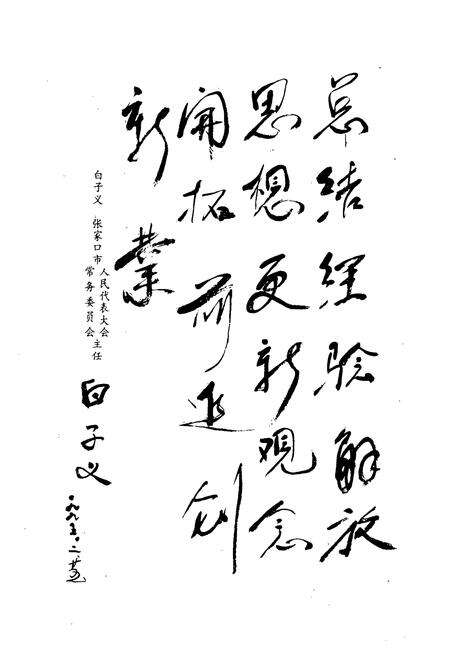 总结经验解放
思想更新观念
开拓前进创
新业
白子义 张家口市人民代表大会常务委员会主任
白子义
一九九五.二.